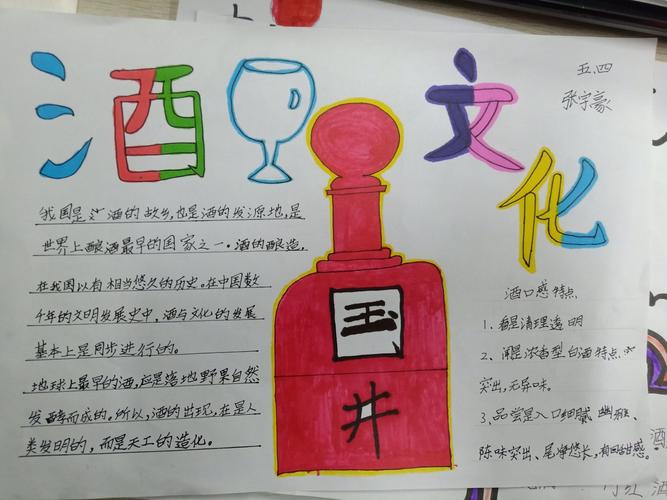 酒文化
五.四
张宇豪
我国是酒的故乡,也是酒的发源地,是
世界上酿酒最早的国家之一。酒的酿造,
在我国以有相当悠久的历史。在中国数
千年的文明发展史中,酒与文化的发展
基本上是同步进行的。
地球上最早的酒,应是落地野果自然
发酵而成的。所以,酒的出现,在是人
类发明的,而是天工的造化。
玉
井
酒口感特点
1、看是清理透明
2、闻是浓香型白酒特点
突出,无异味。
3、品尝是入口细腻 幽雅、
陈味突出、尾净悠长,有回甜感。